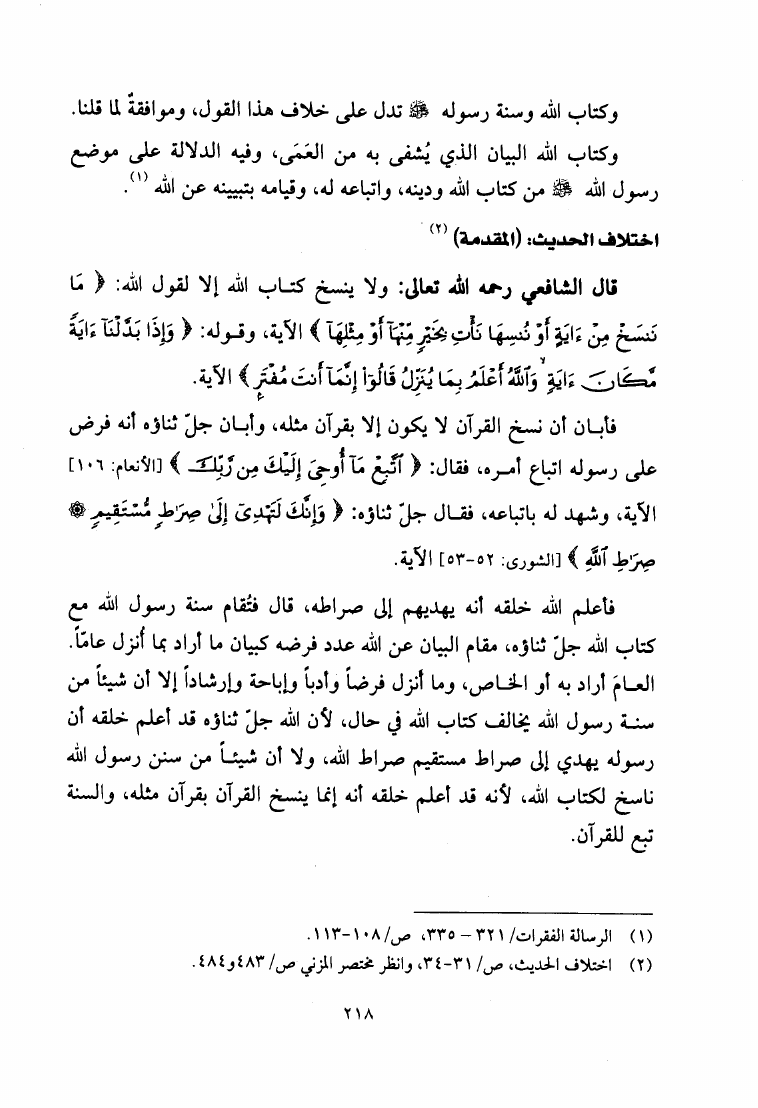 وكتاب الله وسنة رسوله ﷺ تدل على خلاف هذا القول، وموافقةٌ لما قلنا.
وكتاب الله البيان الذي يُشفى به من العَمَى، وفيه الدلالة على موضع
رسول الله ﷺ من كتاب الله ودينه، واتباعه له، وقيامه بتبيينه عن الله (١).
اختلاف الحديث: (المقدمة) (٢)
قال الشافعي رحمه الله تعالى: ولا ينسخ كتاب الله إلا لقول الله: ﴿ مَا
نَنسَخْ مِنْ ءَايَةٍ أَوْ نُنسِهَا نَأْتِ بِخَيْرٍ مِّنْهَآ أَوْ مِثْلِهَآ ﴾ الآية، وقوله: ﴿ وَإِذَا بَدَّلْنَآ ءَايَةً
مَّكَانَ ءَايَةٍ ۙ وَٱللَّهُ أَعْلَمُ بِمَا يُنَزِّلُ قَالُوٓا۟ إِنَّمَآ أَنتَ مُفْتَرٍۭ ﴾ الآية.
فأبان أن نسخ القرآن لا يكون إلا بقرآن مثله، وأبان جلّ ثناؤه أنه فرض
على رسوله اتباع أمره، فقال: ﴿ ٱتَّبِعْ مَآ أُوحِىَ إِلَيْكَ مِن رَّبِّكَ ﴾ [الأنعام: ١٠٦]
الآية، وشهد له باتباعه، فقال جلّ ثناؤه: ﴿ وَإِنَّكَ لَتَهْدِىٓ إِلَىٰ صِرَٰطٍ مُّسْتَقِيمٍ ۞
صِرَٰطِ ٱللَّهِ ﴾ [الشورى: ٥٢-٥٣] الآية.
فأعلم الله خلقه أنه يهديهم إلى صراطه، قال فتُقام سنة رسول الله مع
كتاب الله جلّ ثناؤه، مقام البيان عن الله عدد فرضه كبيان ما أراد بما أُنزل عامّاً.
العامَ أراد به أو الخاص، وما أنزل فرضاً وأدباً وإباحة وإرشاداً إلا أن شيئاً من
سنة رسول الله يخالف كتاب الله في حال، لأن الله جلّ ثناؤه قد أعلم خلقه أن
رسوله يهدي إلى صراط مستقيم صراط الله، ولا أن شيئاً من سنن رسول الله
ناسخ لكتاب الله، لأنه قد أعلم خلقه أنه إنما ينسخ القرآن بقرآن مثله، والسنة
تبع للقرآن.
(١) الرسالة الفقرات/ ٣٢١ – ٣٣٥، ص/١٠٨-١١٣.
(٢) اختلاف الحديث، ص/ ٣١-٣٤، وانظر مختصر المزني ص/ ٤٨٣و٤٨٤.
٢١٨